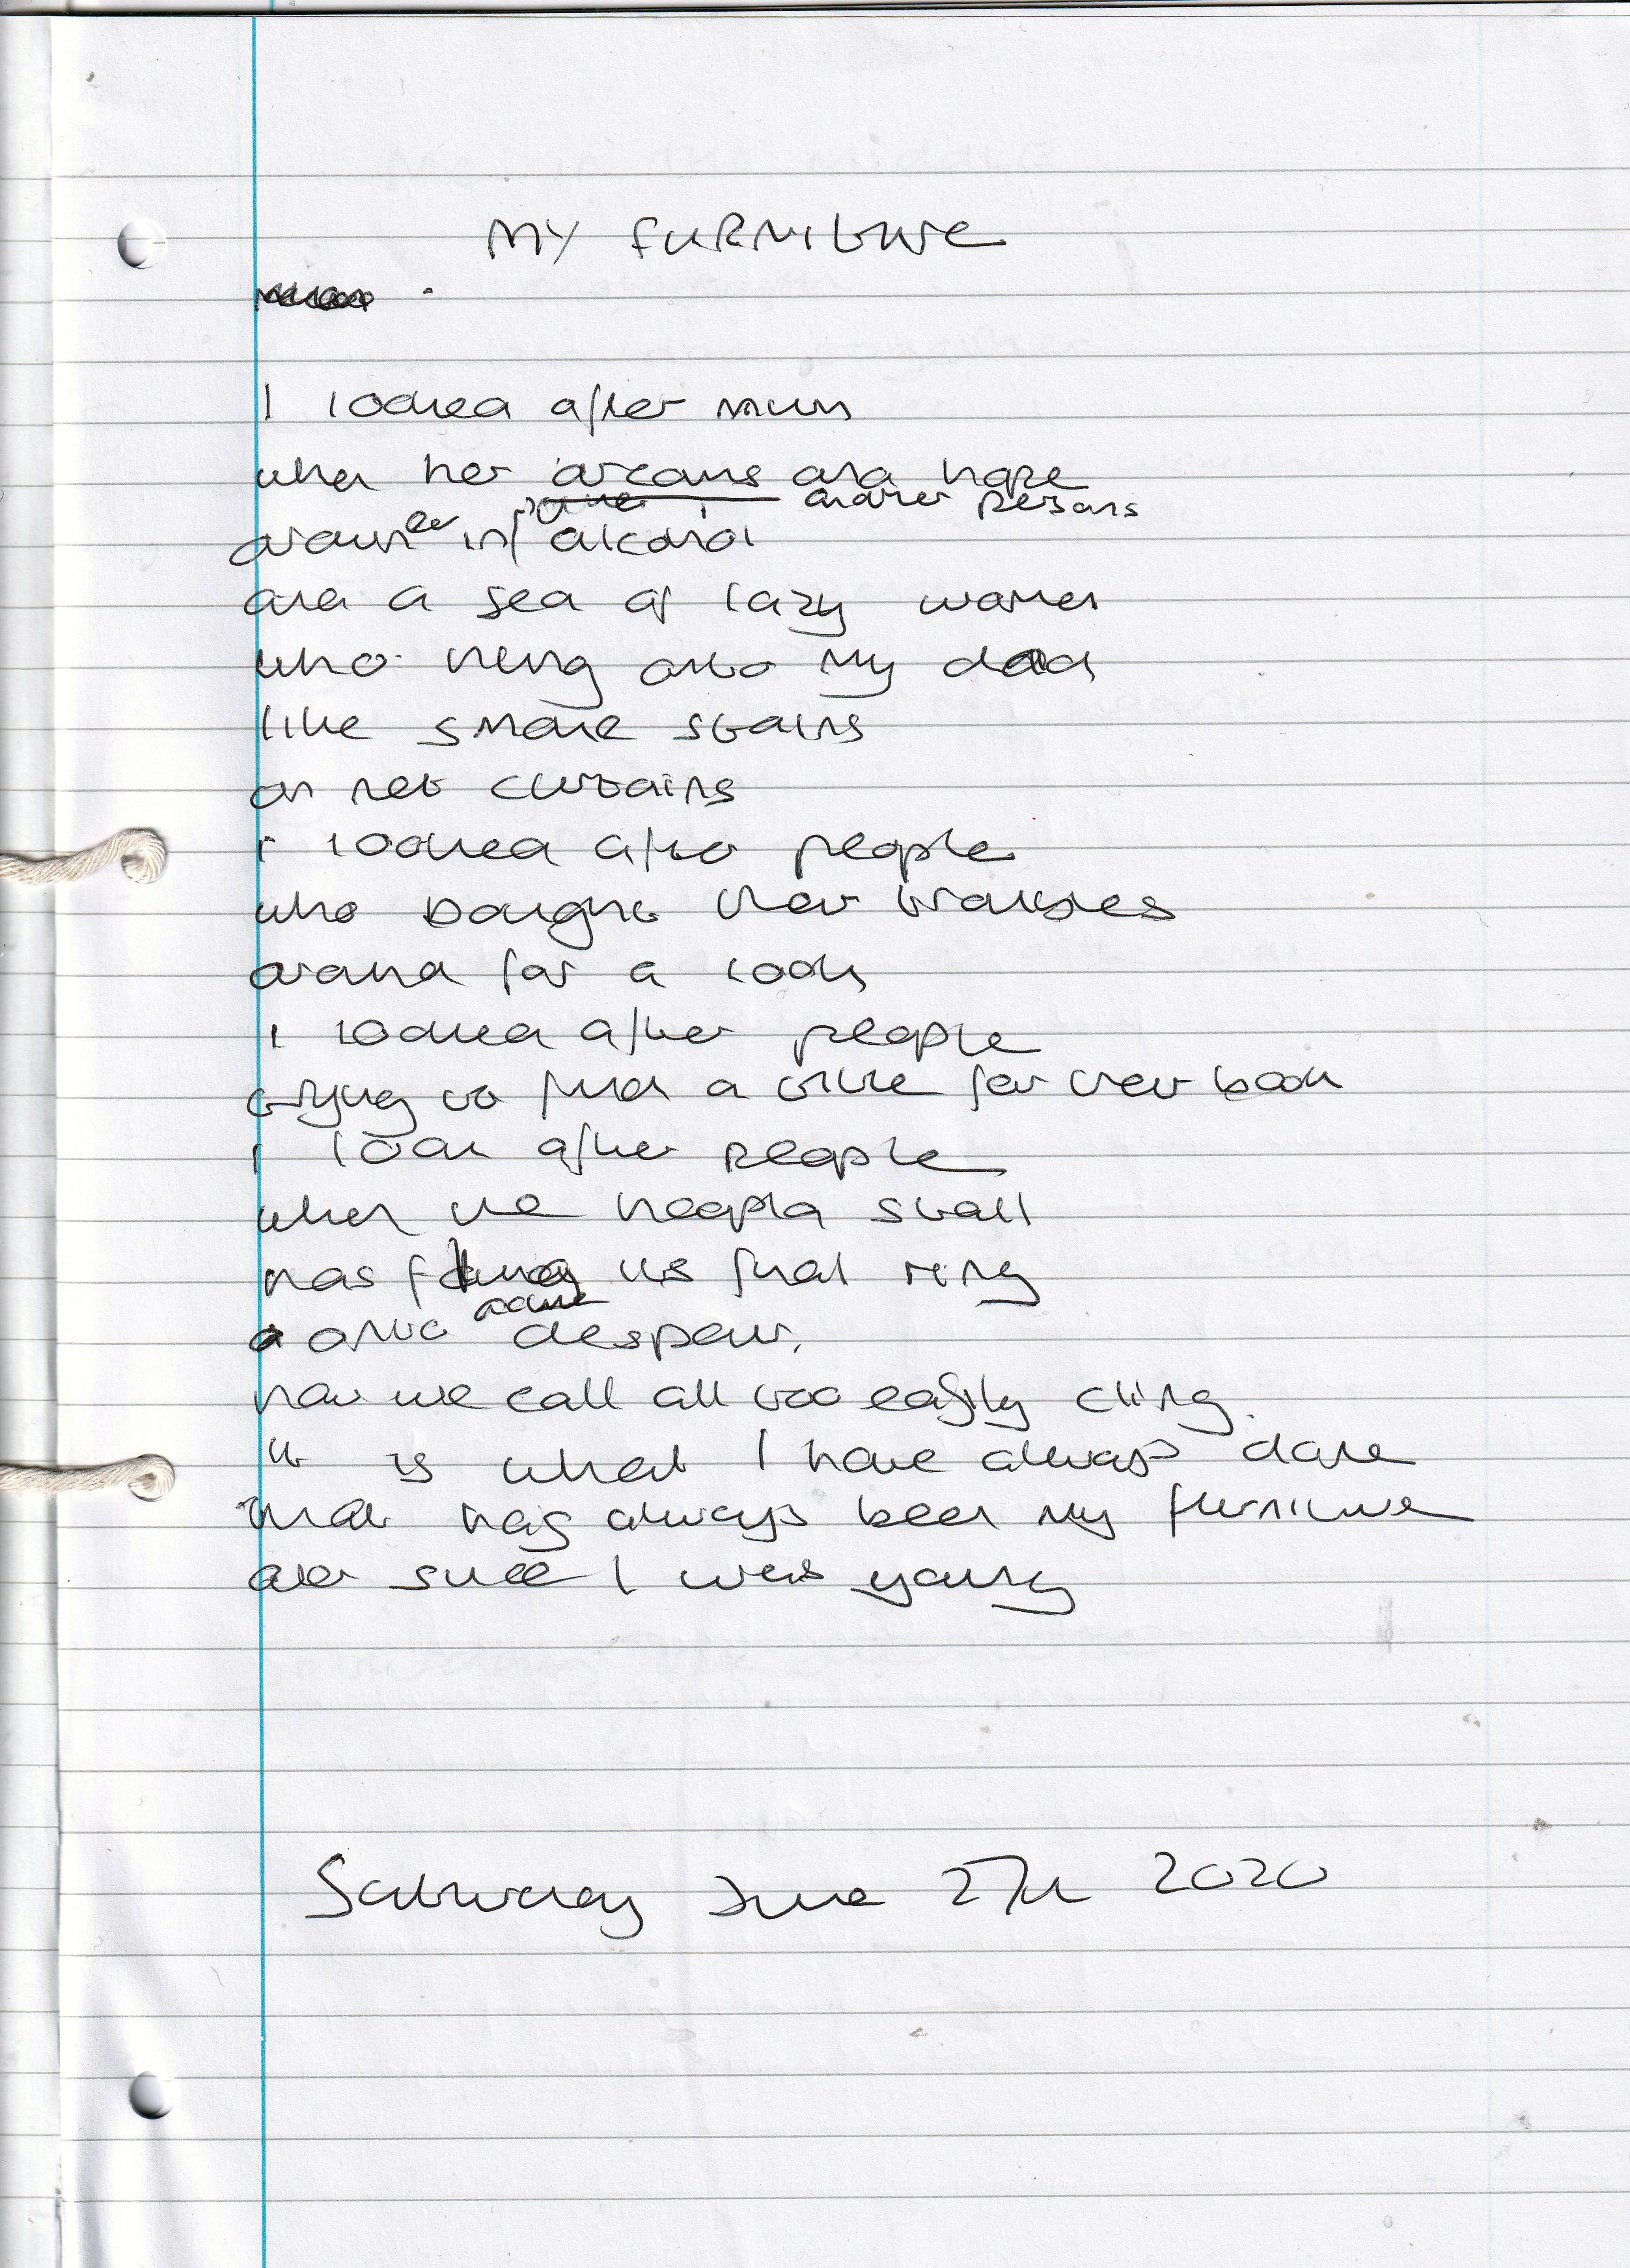 MY FURNITURE
I looked after mum
when her dreams and hope
another persons
drowned in alcohol
and a sea of lazy women
who hung onto my dad
like smoke stains
on net curtains
I looked after people
who bought their troubles
around for a look
I looked after people
trying to find a title for their book
I look after people
when the hoopla stall
has flung its final ring
onto despair.
how we call all too easily cling.
it is what I have always done
that has always been my furniture
ever since I was young
Saturday June 27th 2020